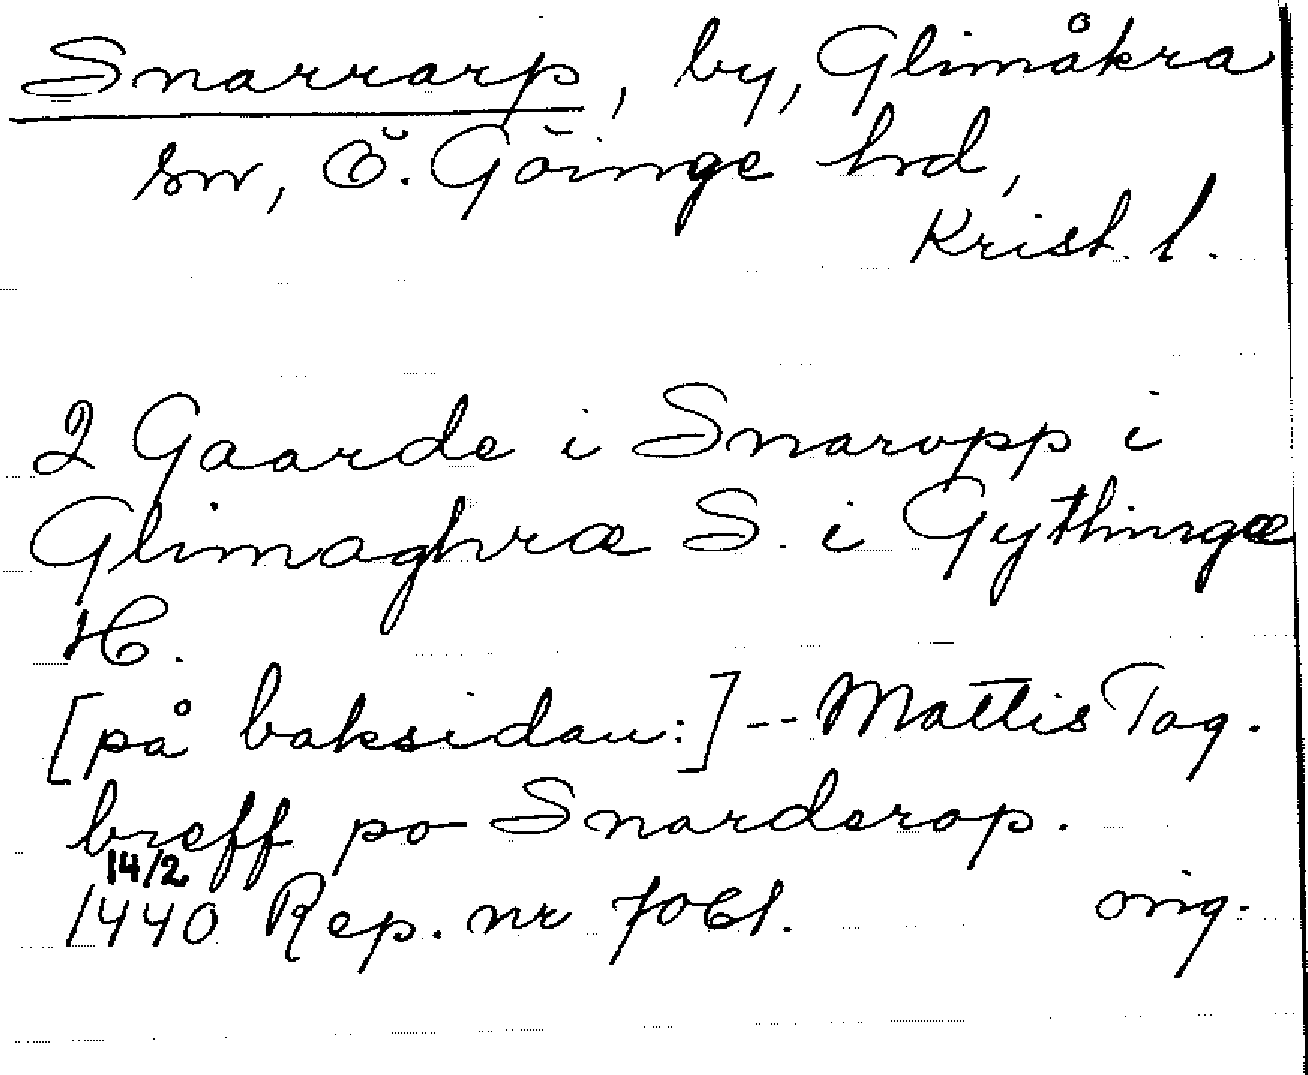 Snarrarp, by, Glimåkra
sn, Ö. Göinge hd,
Krist. l.
2 Gaarde i Snaropp i
Glimaghræ S. i Gythingæ
H.
[på baksidan:] -- Mattis Tag.
breff po Snarderop.
14/2
1440 Rep. nr 7061. orig.